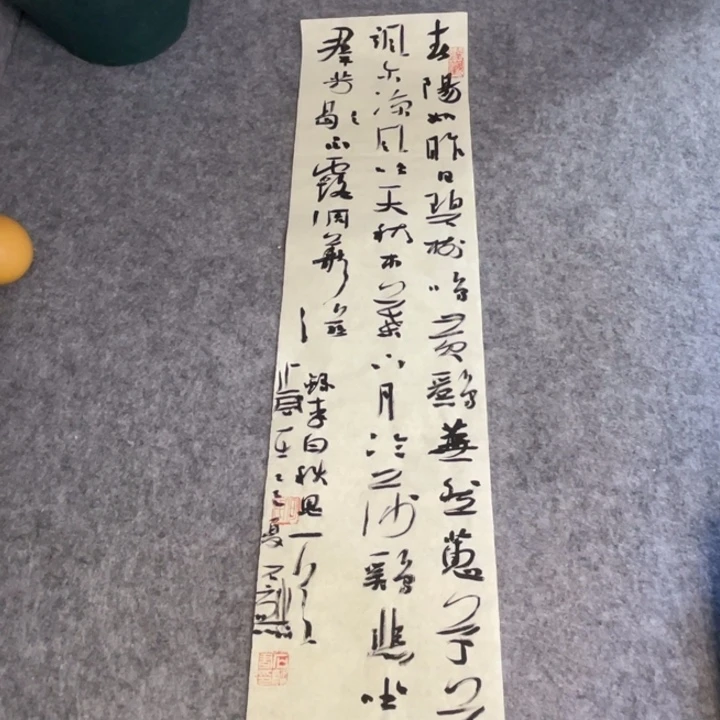 春陽如昨日碧樹鳴黃鸝蕪然蕙草
颯尔涼風吹天秋木葉下月冷莎鷄悲坐
羣芳歇白露凋華滋
錄李白秋思一首
歲在乙巳夏